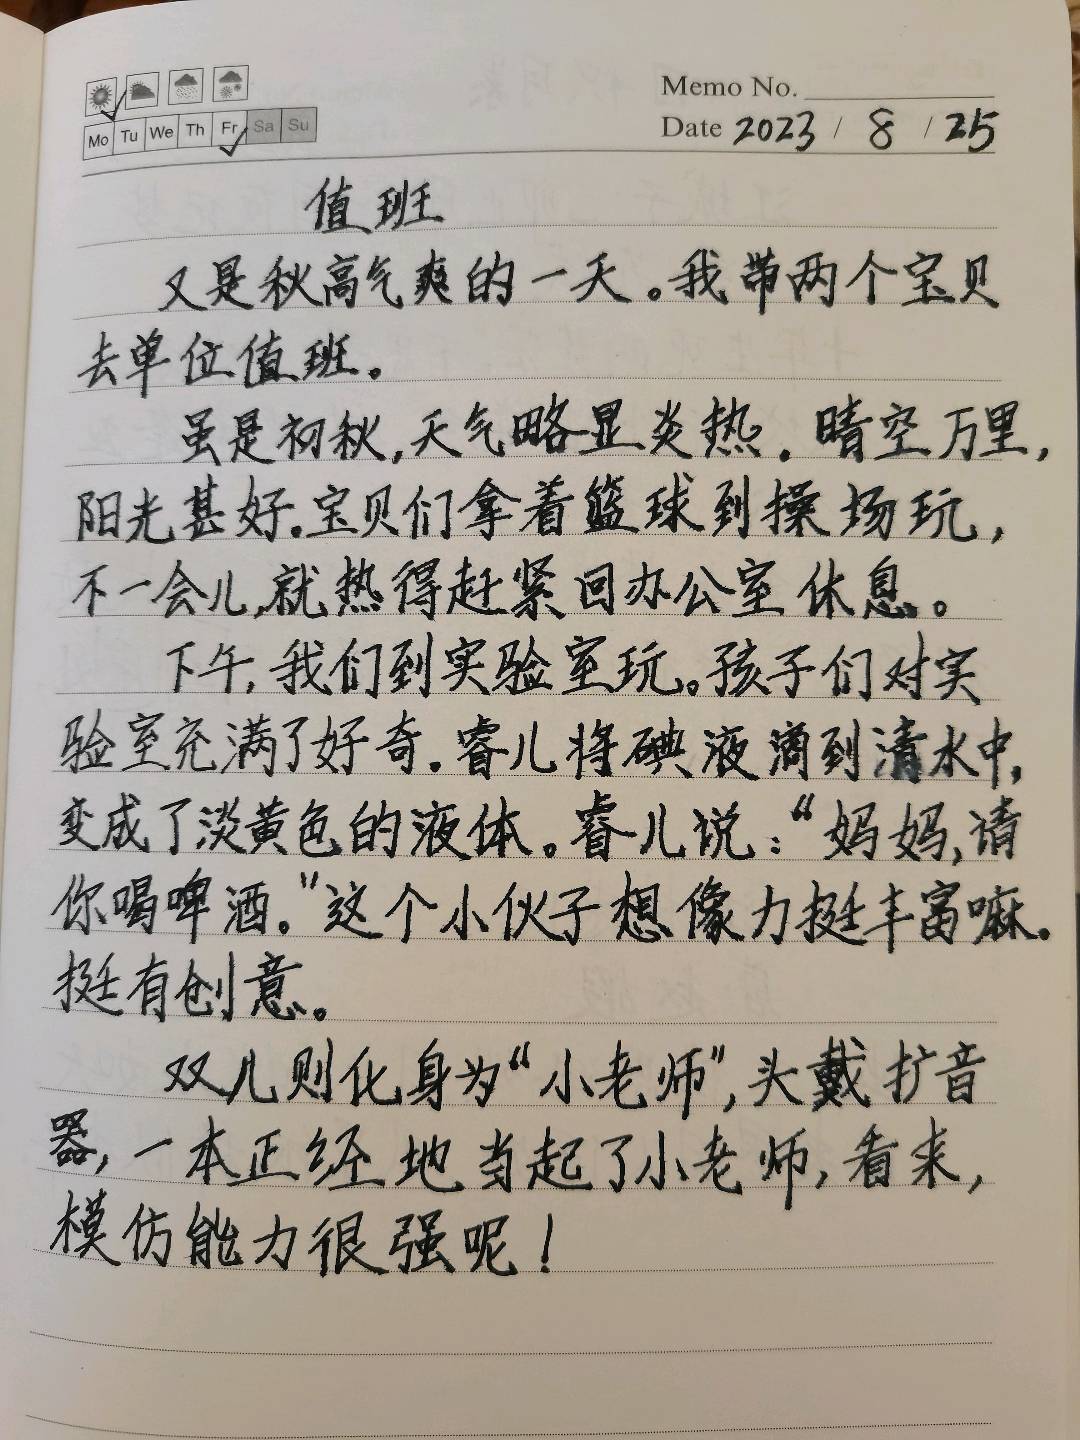 Memo No.
Mo Tu We Th Fr Sa Su
Date 2023 / 8 / 25
值班
又是秋高气爽的一天。我带两个宝贝
去单位值班。
虽是初秋,天气略显炎热。晴空万里,
阳光甚好。宝贝们拿着篮球到操场玩,
不一会儿,就热得赶紧回办公室休息。
下午,我们到实验室玩。孩子们对实
验室充满了好奇。睿儿将碘液滴到清水中,
变成了淡黄色的液体。睿儿说:“妈妈,请
你喝啤酒。”这个小伙子想像力挺丰富嘛。
挺有创意。
双儿则化身为“小老师”,头戴扩音
器,一本正经地当起了小老师,看来,
模仿能力很强呢!